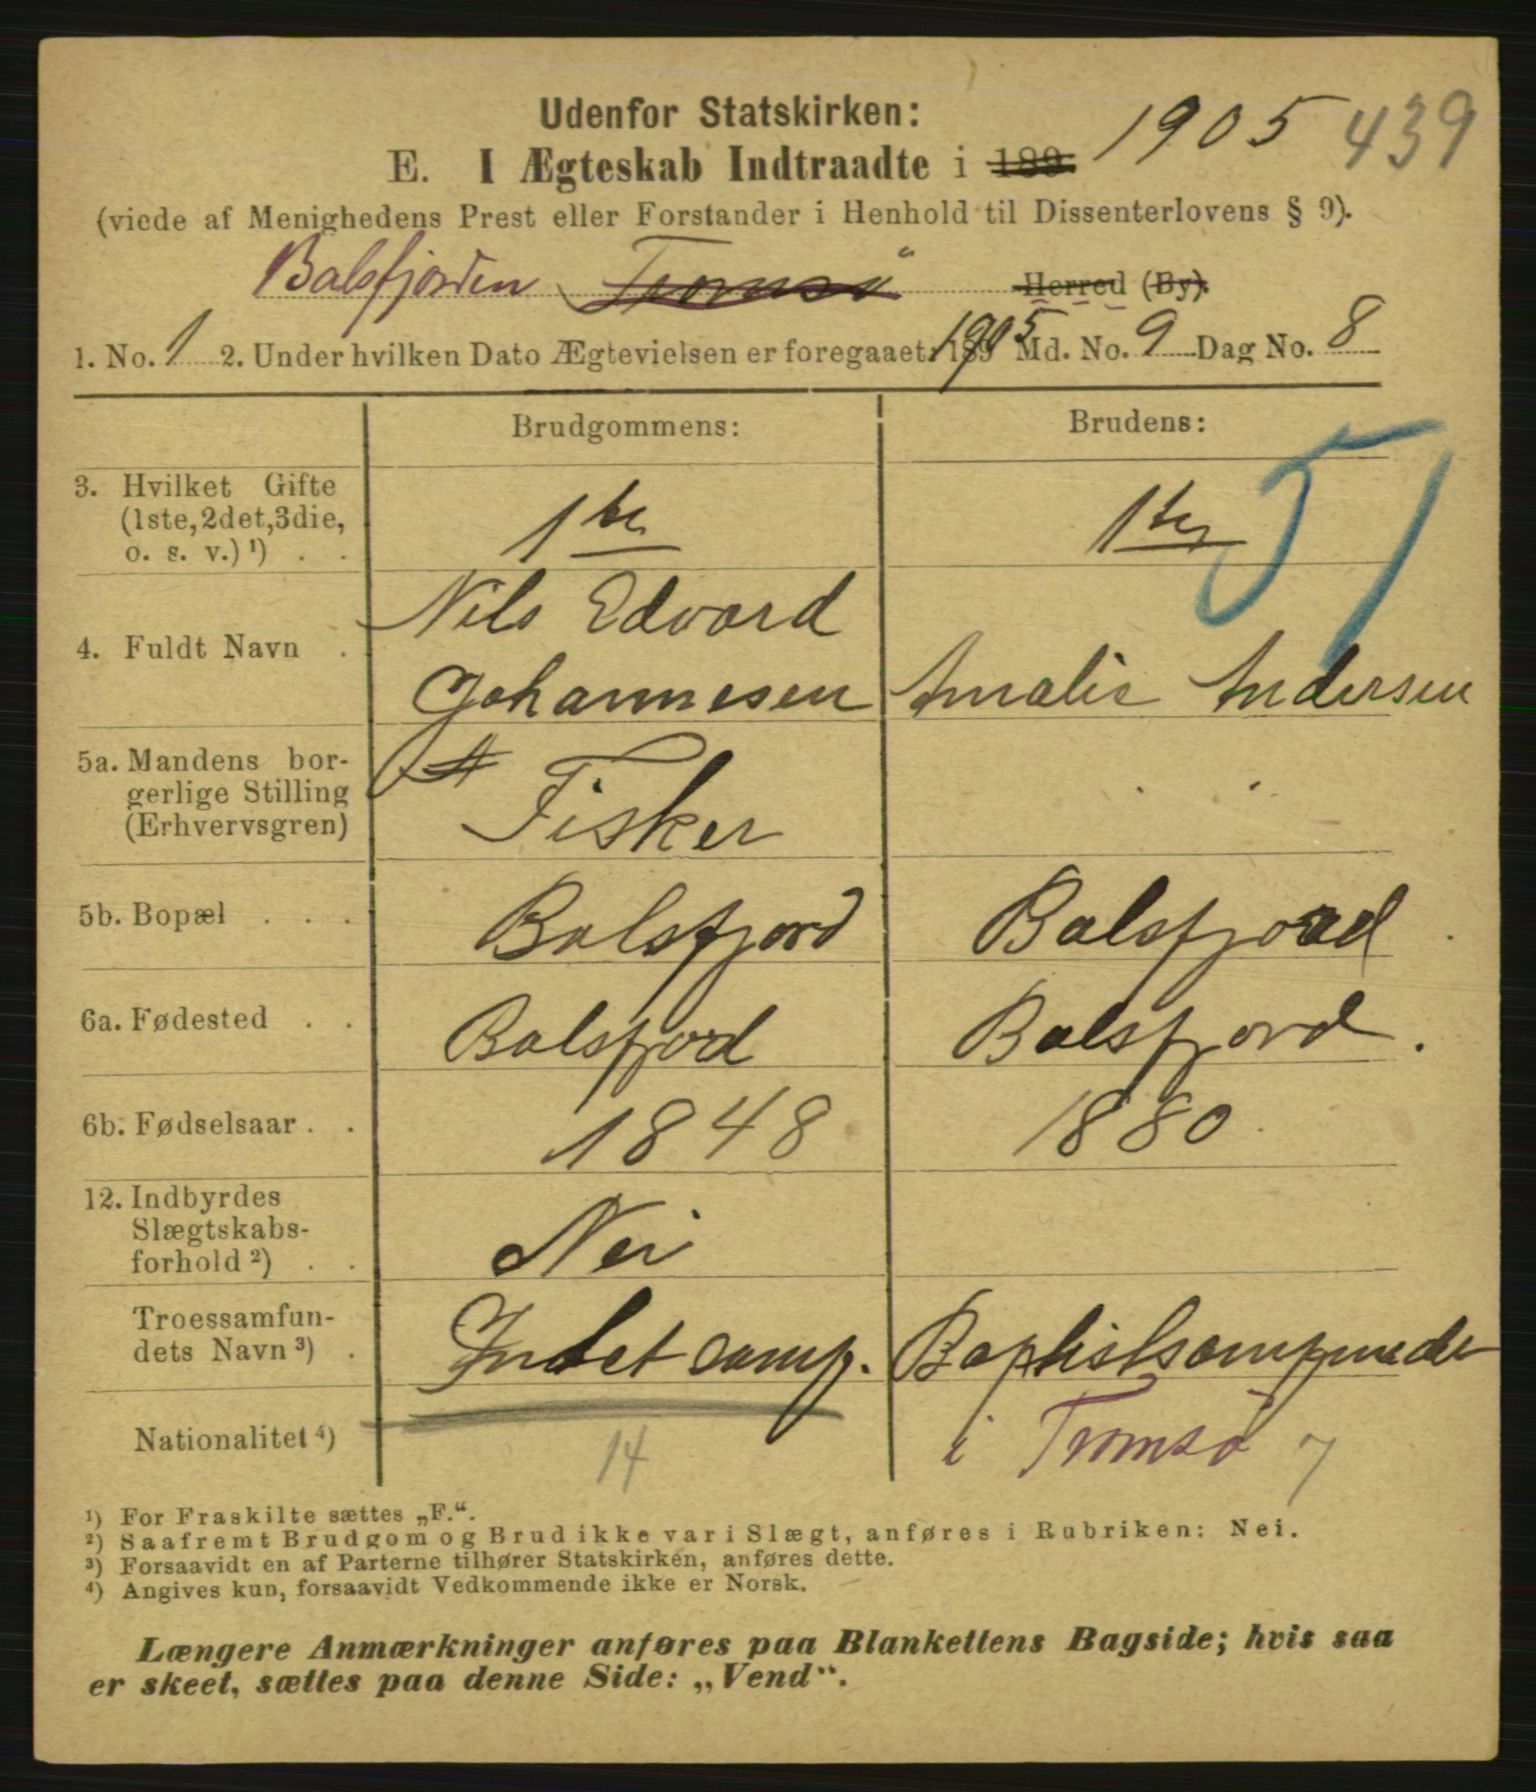 Udenfor Statskirken: 1905 439
E. I Ægteskab Indtraadte i 189
(viede af Menighedens Prest eller Forstander i Henhold til Dissenterlovens § 9).
Balsfjorden Tromsø Herred (By).
1. No. 1 2. Under hvilken Dato Ægtevielsen er foregaaet: 1905 Md. No. 9 Dag No. 8
Brudgommens: Brudens:
51
3. Hvilket Gifte
(1ste, 2det, 3die,
o. s. v.) ¹) . . 1ste 1ste
4. Fuldt Navn . Nils Edvard
Johannesen Amalie Andersen
5a. Mandens bor-
gerlige Stilling
(Erhvervsgren) Fisker
5b. Bopæl . . . Balsfjord Balsfjord
6a. Fødested . . Balsfjord Balsfjord.
6b. Fødselsaar . . 1848 1880
12. Indbyrdes
Slægtskabs-
forhold ²) . . Nei
Troessamfun-
dets Navn ³) . Intet samf. Baptistsamfundet
i Tromsø 7
Nationalitet ⁴) 14
¹) For Fraskilte sættes „F.“.
²) Saafremt Brudgom og Brud ikke var i Slægt, anføres i Rubriken: Nei.
³) Forsaavidt en af Parterne tilhører Statskirken, anføres dette.
⁴) Angives kun, forsaavidt Vedkommende ikke er Norsk.
Længere Anmærkninger anføres paa Blankettens Bagside; hvis saa
er skeet, sættes paa denne Side: „Vend“.